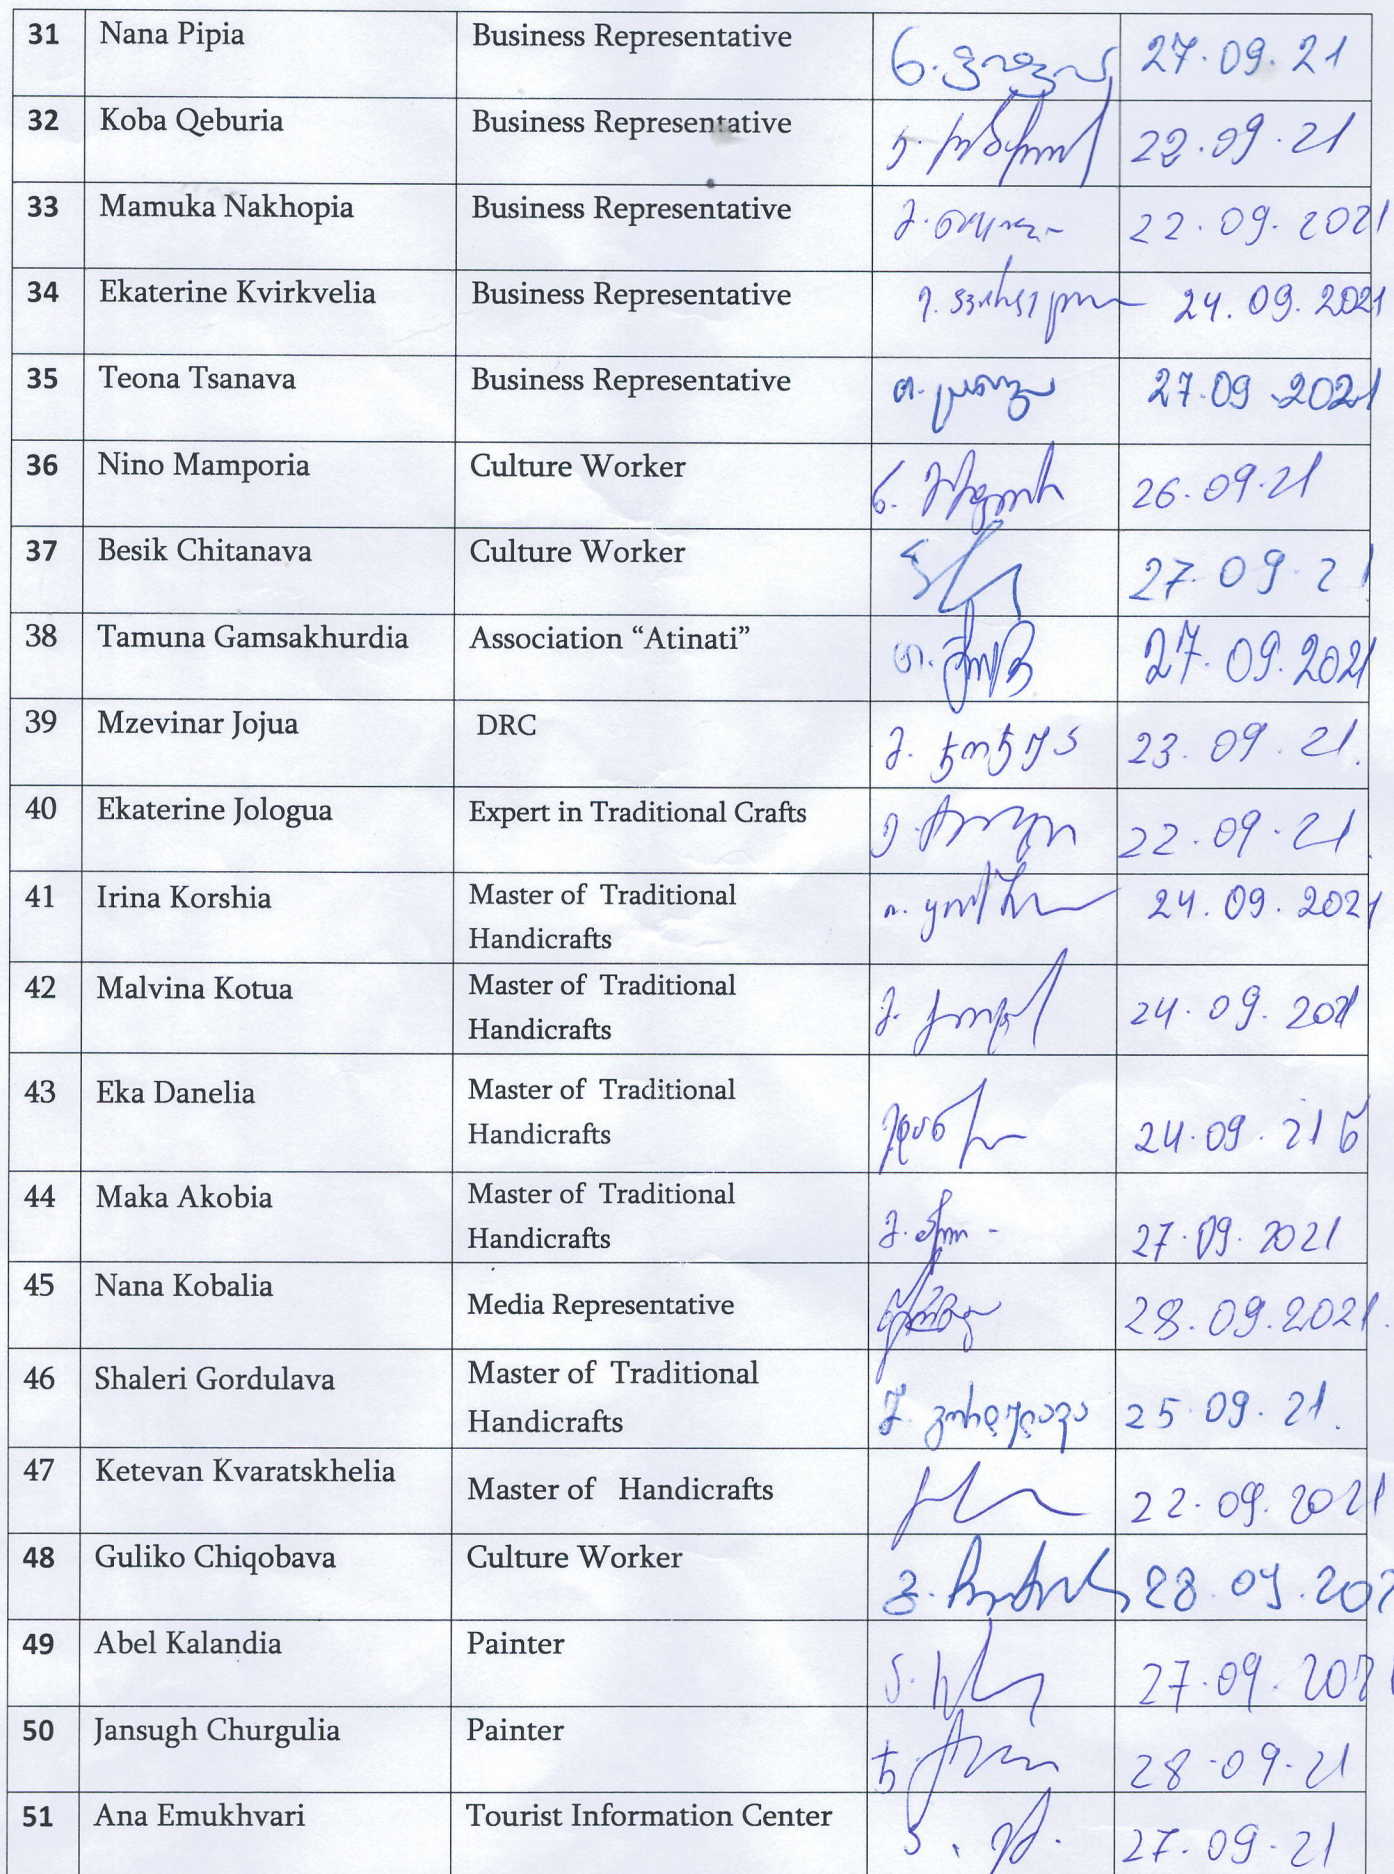 31 Nana Pipia Business Representative ნ. პიპია 27.09.21
32 Koba Qeburia Business Representative 22.09.21
33 Mamuka Nakhopia Business Representative 22.09.2021
34 Ekaterine Kvirkvelia Business Representative 24.09.2021
35 Teona Tsanava Business Representative 27.09.2021
36 Nino Mamporia Culture Worker 26.09.21
37 Besik Chitanava Culture Worker 27.09.21
38 Tamuna Gamsakhurdia Association “Atinati” 27.09.2021
39 Mzevinar Jojua DRC მ. ჯოჯუა 23.09.21.
40 Ekaterine Jologua Expert in Traditional Crafts 22.09.21.
41 Irina Korshia Master of Traditional 24.09.2021
Handicrafts
42 Malvina Kotua Master of Traditional 24.09.2021
Handicrafts
43 Eka Danelia Master of Traditional
Handicrafts 24.09.21 წ
44 Maka Akobia Master of Traditional
Handicrafts 27.09.2021
45 Nana Kobalia Media Representative 28.09.2021.
46 Shaleri Gordulava Master of Traditional
Handicrafts შ. გორდულავა 25.09.21.
47 Ketevan Kvaratskhelia Master of Handicrafts 22.09.2021
48 Guliko Chiqobava Culture Worker 28.09.202
49 Abel Kalandia Painter 27.09.2021
50 Jansugh Churgulia Painter 28.09.21
51 Ana Emukhvari Tourist Information Center 27.09.21